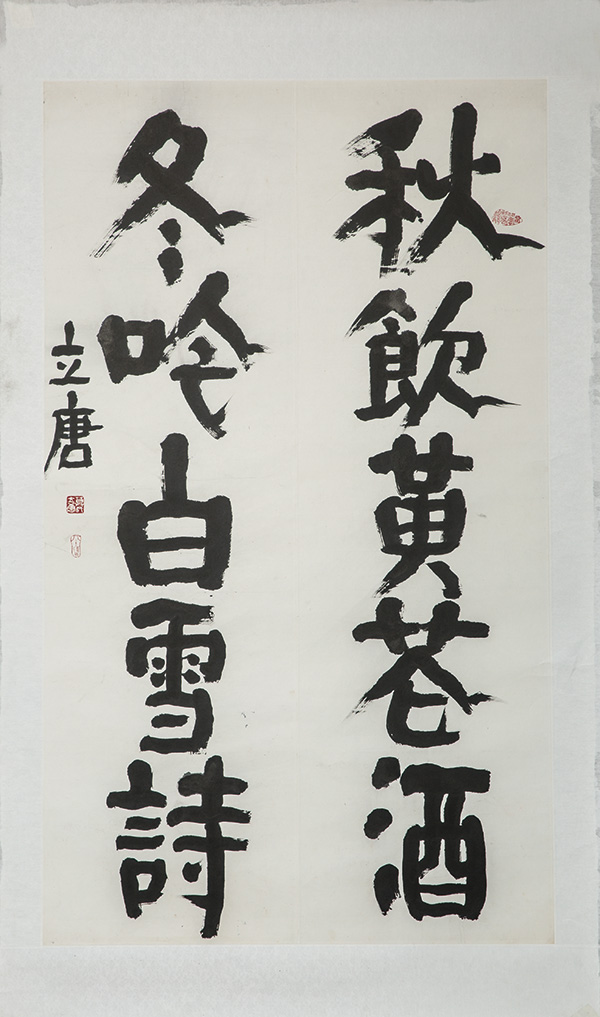 秋飲黄花酒
冬吟白雪詩
立唐